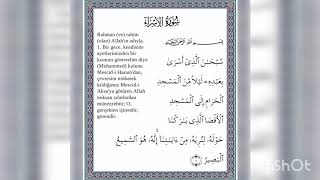 سُورَةُ الْإِسْرَاءِ
Rahman (ve) rahim
(olan) Allah'ın adıyla.
1. Bir gece, kendisine
ayetlerimizden bir
kısmını gösterelim diye
(Muhammed) kulunu
Mescid-i Haram'dan,
çevresini mübarek
kıldığımız Mescid-i
Aksa'ya götüren Allah
noksan sıfatlardan
münezzehtir; O,
gerçekten işitendir,
görendir.
بِسْمِ اللَّهِ الرَّحْمَٰنِ الرَّحِيمِ
سُبْحَٰنَ ٱلَّذِىٓ أَسْرَىٰ
بِعَبْدِهِۦ لَيْلًا مِّنَ ٱلْمَسْجِدِ
ٱلْحَرَامِ إِلَى ٱلْمَسْجِدِ
ٱلْأَقْصَا ٱلَّذِى بَٰرَكْنَا
حَوْلَهُۥ لِنُرِيَهُۥ مِنْ ءَايَٰتِنَآ إِنَّهُۥ هُوَ ٱلسَّمِيعُ
ٱلْبَصِيرُ